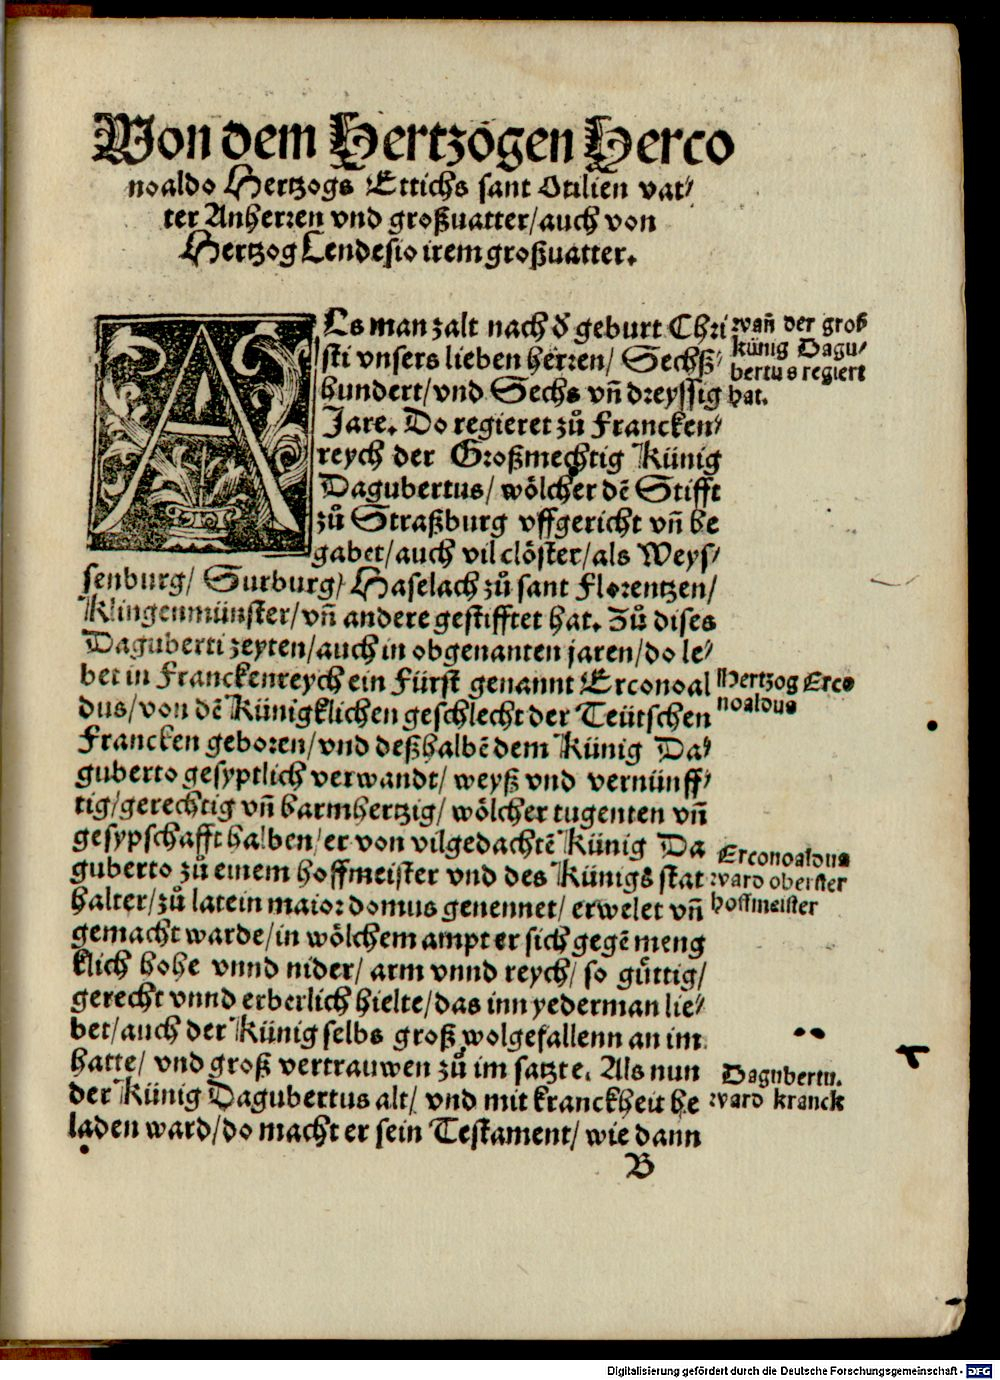 Von dem Hertzogen Herco
noaldo Hertzogs Ettichs sant Otilien vat⸗
ter Anherren vnd großuatter/auch von
Hertzog Lendesio irem großuatter.
ALs man zalt nach d̕ geburt Chri
sti vnsers lieben herren/ Sechß⸗
hundert/vnd Sechs vñ dreyssig
Jare. Do regieret zů Francken⸗
reych der Großmechtig Künig
Dagubertus/ wölcher dē Stifft
zů Straßburg vffgericht vñ be
gabet/auch vil clöster/als Weys⸗
senburg/ Surburg/ Haselach zů sant Florentzen/
Klingenmünster/vñ andere gestifftet hat. Zů dises
Daguberti zeyten/auch in obgenanten jaren/do le⸗
bet in Franckenreych ein Fürst genannt Erconoal
dus/von dē Künigklichen geschlecht der Teütschen
Francken geboren/vnd deßhalbē dem Künig Da⸗
guberto gesyptlich verwandt/ weyß vnd vernünff⸗
tig/gerechtig vñ barmhertzig/ wölcher tugenten vñ
gesypschafft halben/er von vilgedachtē Künig Da
guberto zů einem hoffmeister vnd des Künigs stat
halter/zů latein maior domus genennet/ erwelet vñ
gemacht warde/in wölchem ampt er sich gegē meng
klich hohe vnnd nider/ arm vnnd reych/ so güttig/
gerecht vnnd erberlich hielte/das inn yederman lie⸗
bet/auch der Künig selbs groß wolgefallenn an im
hatte/ vnd groß vertrauwen zů im satzte. Als nun
der Künig Dagubertus alt/ vnd mit kranckheit be
laden ward/do macht er sein Testament/ wie dann
B
wañ der groß
künig Dagu⸗
bertus regiert
hat.
Hertzog Erco
noaldus
Erconoaldus
ward oberster
hoffmeister
Dagubertu.
ward kranck
Digitalisierung gefördert durch die Deutsche Forschungsgemeinschaft - DFG